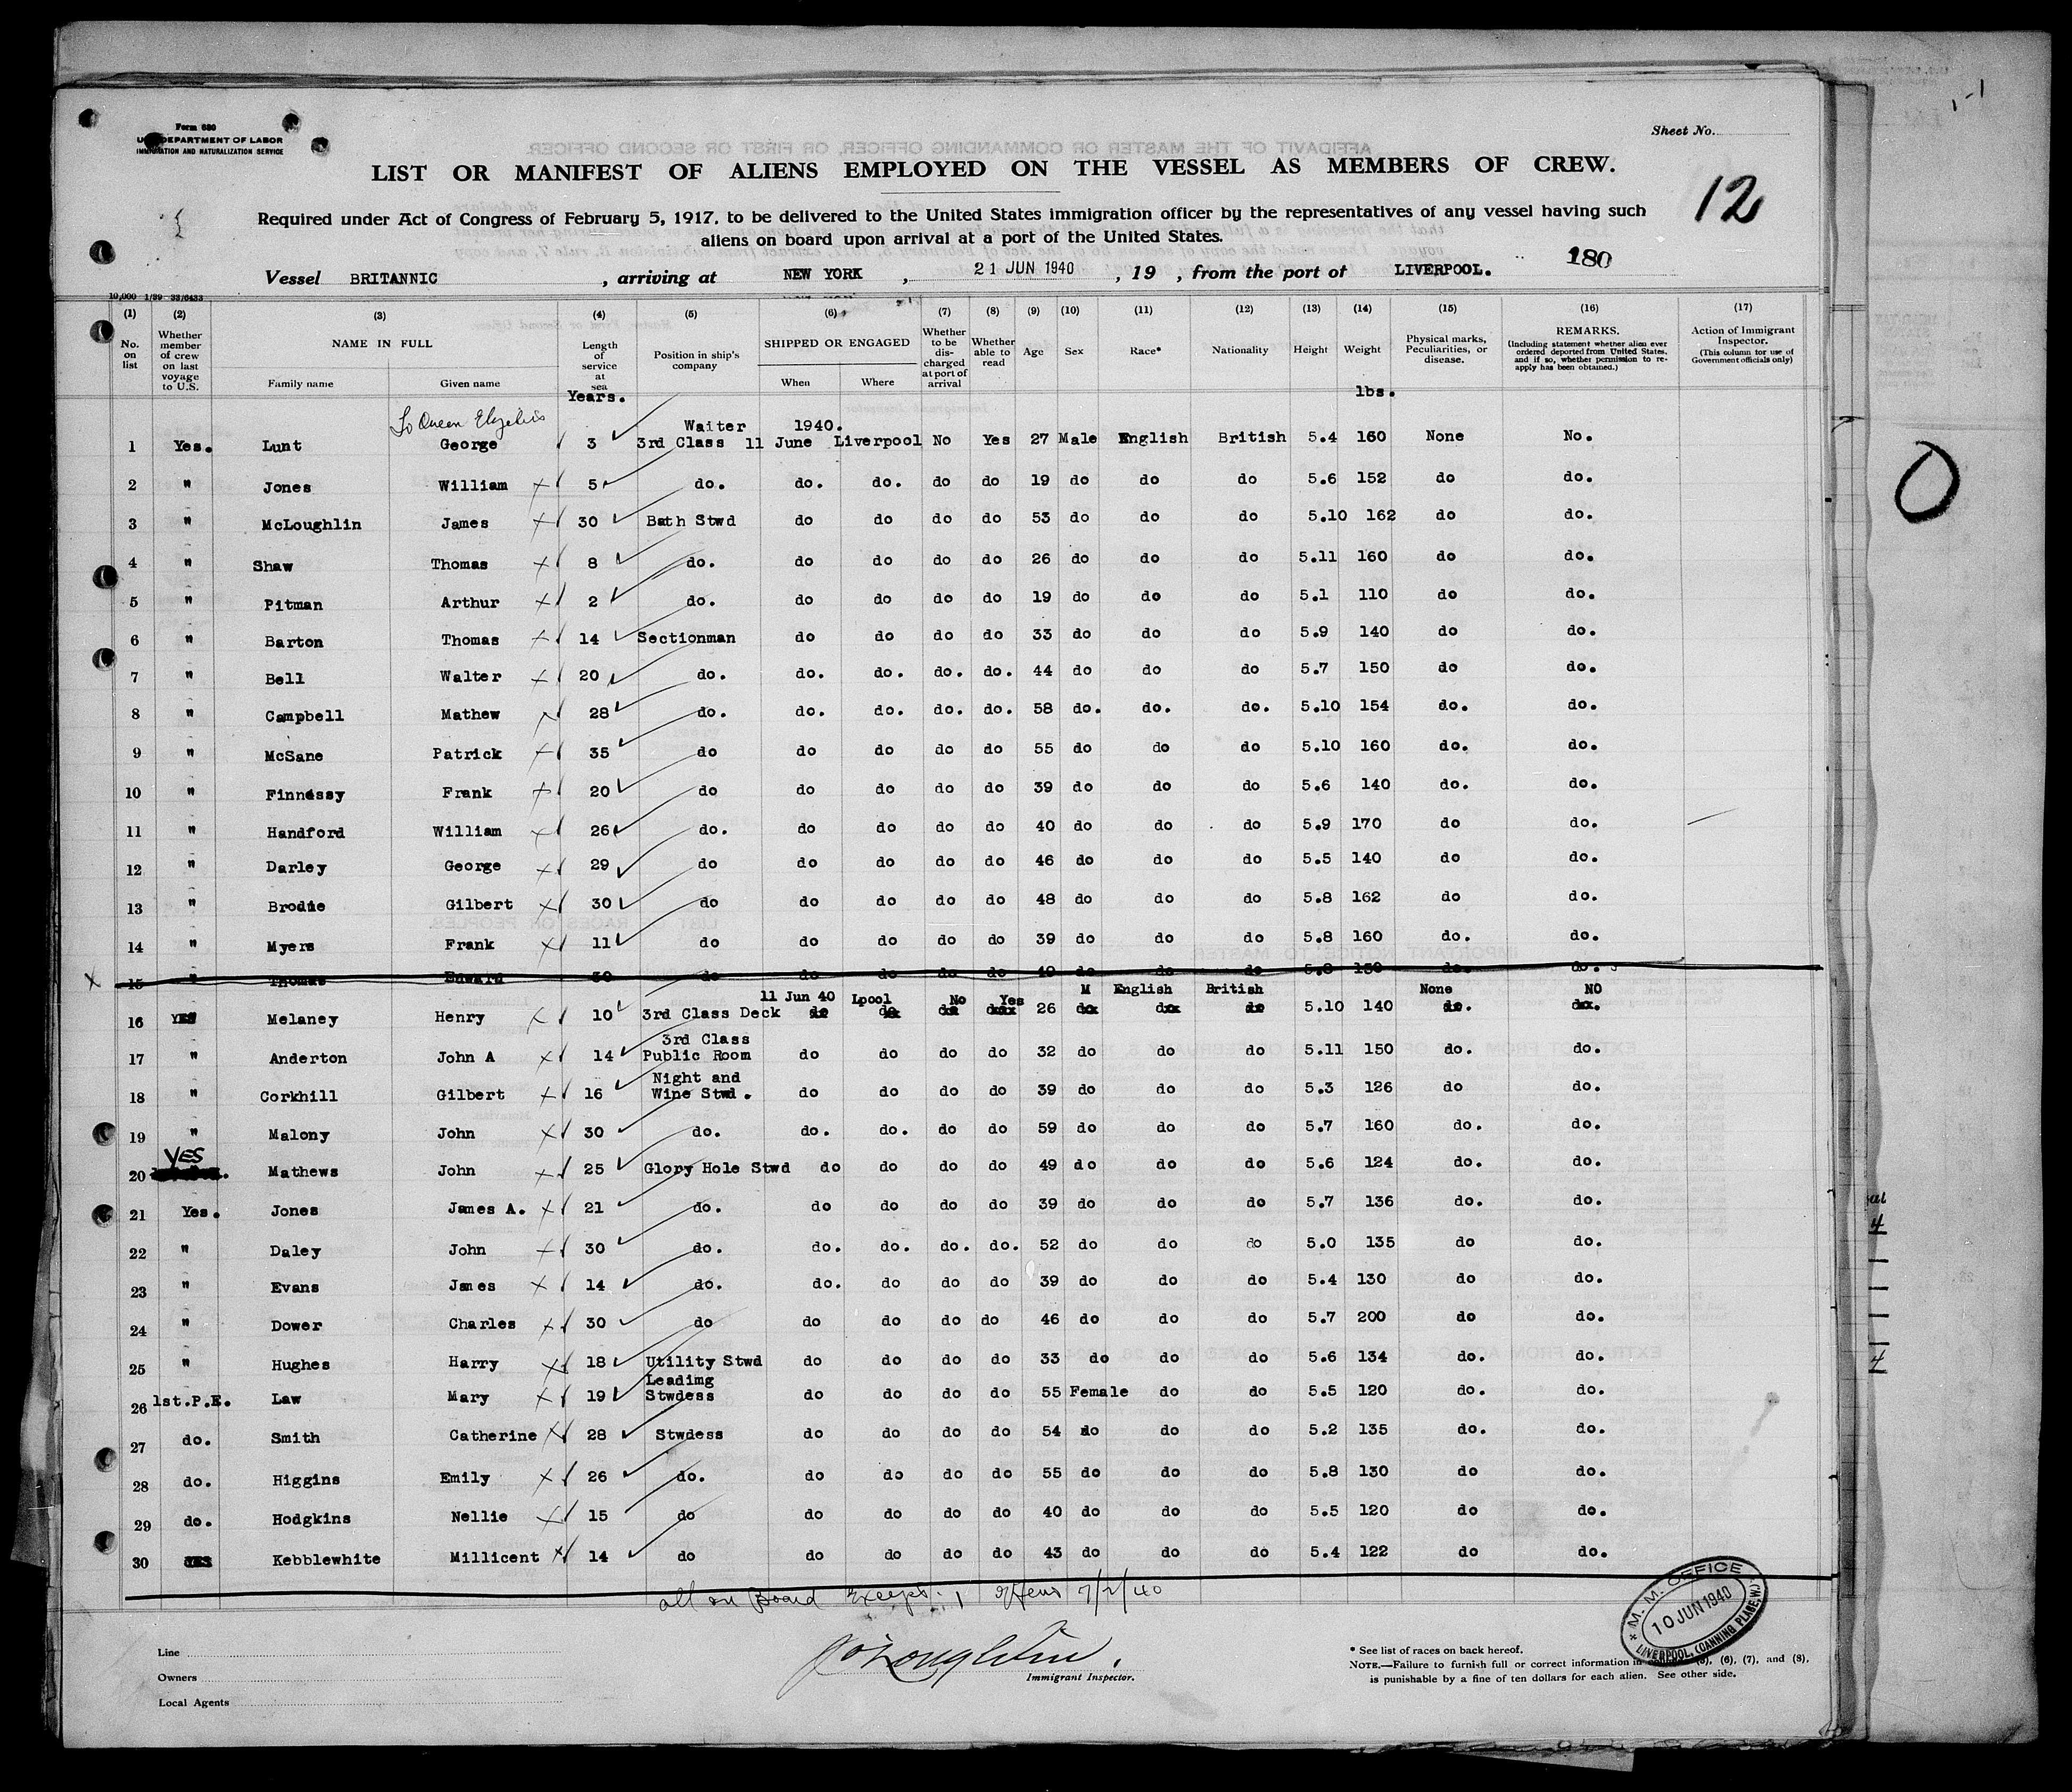 Form 680
U.S. DEPARTMENT OF LABOR
IMMIGRATION AND NATURALIZATION SERVICE
Sheet No.
LIST OR MANIFEST OF ALIENS EMPLOYED ON THE VESSEL AS MEMBERS OF CREW.
12
Required under Act of Congress of February 5, 1917, to be delivered to the United States immigration officer by the representatives of any vessel having such
aliens on board upon arrival at a port of the United States.
180
Vessel BRITANNIC , arriving at NEW YORK , 21 JUN 1940 , 19 , from the port of LIVERPOOL.
10,000 1/39 33/6433
(1) (2) (3) (4) (5) (6) (7) (8) (9) (10) (11) (12) (13) (14) (15) (16) (17)
No. on list
Whether member of crew on last voyage to U.S.
NAME IN FULL
Family name Given name
Length of service at sea
Years.
Position in ship's company
SHIPPED OR ENGAGED
When Where
Whether to be discharged at port of arrival
Whether able to read
Age Sex Race* Nationality Height Weight
lbs.
Physical marks, Peculiarities, or disease.
REMARKS.
(Including statement whether alien ever ordered deported from United States, and if so, whether permission to reapply has been obtained.)
Action of Immigrant Inspector.
(This column for use of Government officials only)
To Queen Elizabeth
Waiter 1940.
1 Yes. Lunt George 3 3rd Class 11 June Liverpool No Yes 27 Male English British 5.4 160 None No.
2 " Jones William 5 do. do. do. do do 19 do do do 5.6 152 do do.
3 " McLoughlin James 30 Bath Stwd do do do do 53 do do do 5.10 162 do do.
4 " Shaw Thomas 8 do. do do do do 26 do do do 5.11 160 do do.
5 " Pitman Arthur 2 do. do do do do 19 do do do 5.1 110 do do.
6 " Barton Thomas 14 Sectionman do do do do 33 do do do 5.9 140 do do.
7 " Bell Walter 20 do. do. do. do. do. 44 do do do 5.7 150 do do.
8 " Campbell Mathew 28 do. do. do. do. do. 58 do. do. do. 5.10 154 do. do.
9 " McSane Patrick 35 do do do do do 55 do do do 5.10 160 do. do.
10 " Finnessy Frank 20 do do do do do 39 do do do 5.6 140 do. do.
11 " Handford William 26 do. do do do do 40 do do do 5.9 170 do do.
12 " Darley George 29 do do do do do 46 do do do 5.5 140 do do.
13 " Brodie Gilbert 30 do do do do do 48 do do do 5.8 162 do do.
14 " Myers Frank 11 do do do do do 39 do do do 5.8 160 do. do.
15 " Thomas Edward 30 do do do do do 49 do do do 5.8 150 do. do.
11 Jun 40 Lpool No Yes M English British None NO
16 YES Melaney Henry 10 3rd Class Deck do do do 26 do do do 5.10 140 do. do.
3rd Class
17 " Anderton John A 14 Public Room do do do do 32 do do do 5.11 150 do. do.
Night and
18 " Corkhill Gilbert 16 Wine Stwd. do do do do 39 do do do 5.3 126 do do.
19 " Malony John 30 do. do. do. do do 59 do do do 5.7 160 do. do.
YES
20 Mathews John 25 Glory Hole Stwd do do do do 49 do do do 5.6 124 do. do.
21 Yes. Jones James A. 21 do. do do do do 39 do do do 5.7 136 do. do.
22 " Daley John 30 do. do. do. do. do. 52 do do do 5.0 135 do do.
23 " Evans James 14 do. do. do do do 39 do do do 5.4 130 do do.
24 " Dower Charles 30 do do do do do 46 do do do 5.7 200 do do.
25 " Hughes Harry 18 Utility Stwd do do do do 33 do do do 5.6 134 do. do.
Leading
26 1st.P.E. Law Mary 19 Stwdess do do do do 55 Female do do 5.5 120 do. do.
27 do. Smith Catherine 28 Stwdess do do do do 54 do do do 5.2 135 do. do.
28 do. Higgins Emily 26 do. do do do do 55 do do do 5.8 130 do do.
29 do. Hodgkins Nellie 15 do do do do do 40 do do do 5.5 120 do do.
30 YES Kebblewhite Millicent 14 do do do do do 43 do do do 5.4 122 do do.
all on Board Except 1 7/2/40
Line
Owners
Local Agents
Immigrant Inspector.
M. M. OFFICE
10 JUN 1940
LIVERPOOL, (CANNING PLACE, W.)
* See list of races on back hereof.
NOTE.—Failure to furnish full or correct information in (5), (6), (7), and (8),
is punishable by a fine of ten dollars for each alien. See other side.